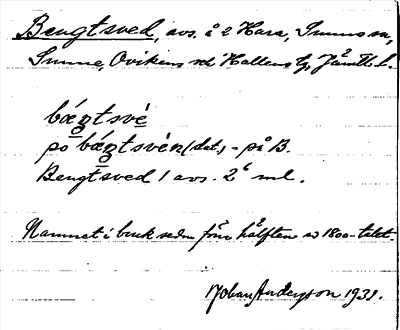 Bengtsved, avs. å 2 Hara, Sunne sn,
Sunne, Ovikens och Hallens tg, Jämtl. l.
bǽgtsvè
pö bǽgtsvèn (dat.) - på B.
Bengtsved 1 avs. 2⁶ ml.
Namnet i bruk sedan förra hälften av 1800-talet.
Johan Anderson 1931.